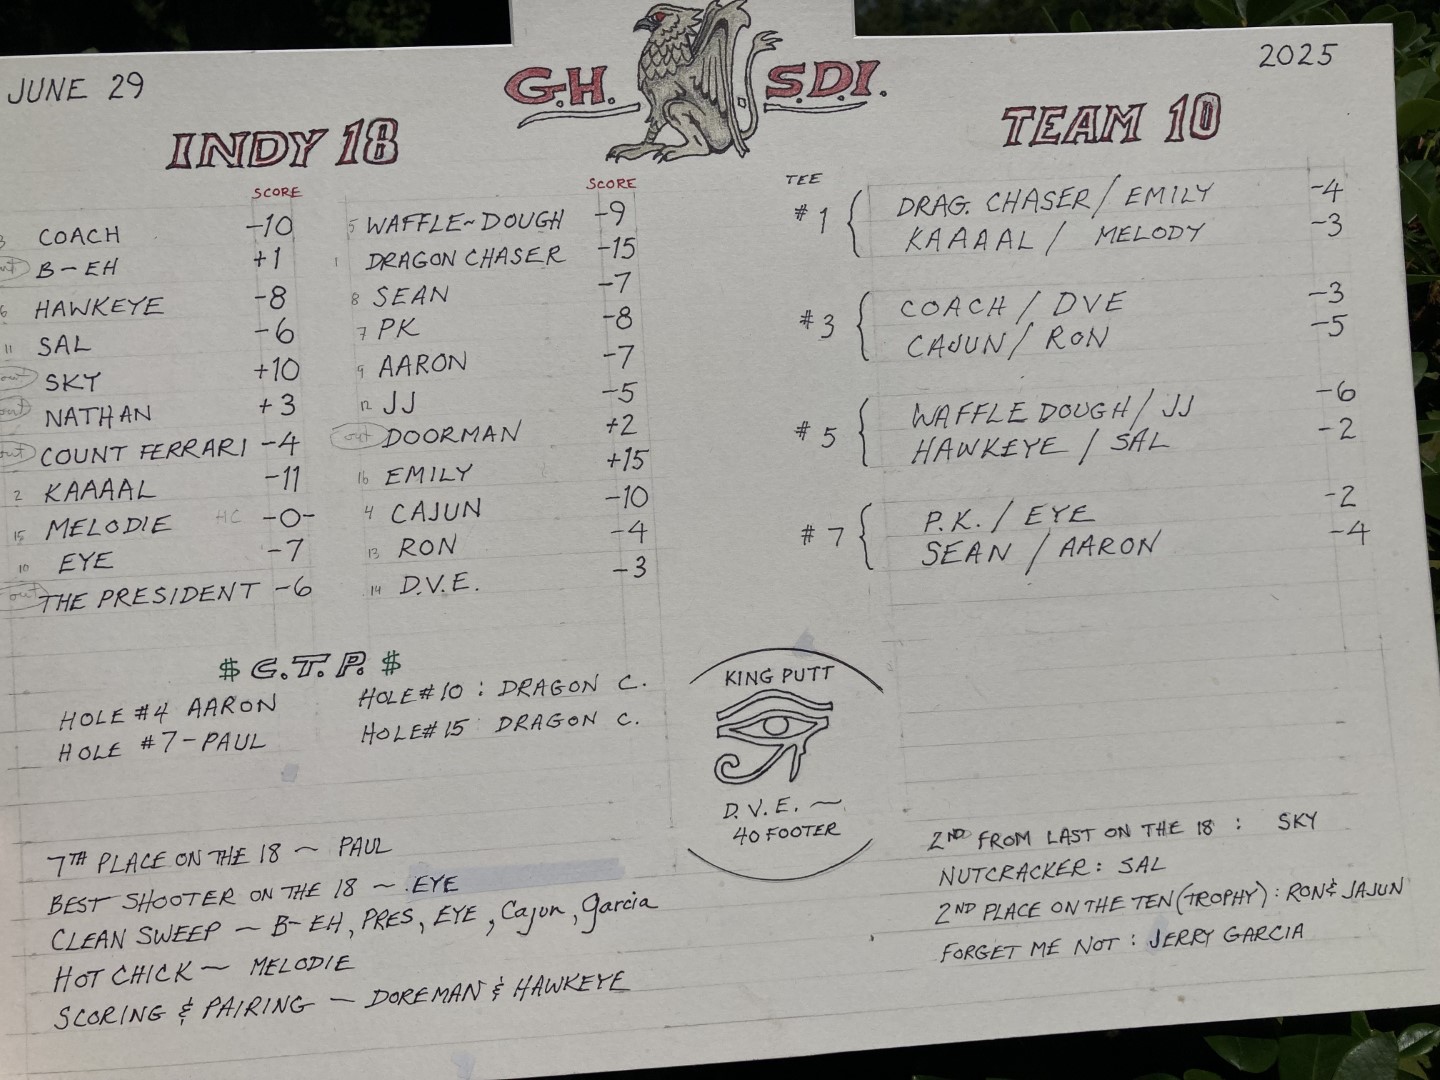 JUNE 29
G.H. S.D.I.
2025
INDY 18
TEAM 10
SCORE
3 COACH -10
out B-EH +1
6 HAWKEYE -8
11 SAL -6
out SKY +10
out NATHAN +3
out COUNT FERRARI -4
2 KAAAAL -11
15 MELODIE HC -0-
10 EYE -7
out THE PRESIDENT -6
SCORE
5 WAFFLE~DOUGH -9
1 DRAGON CHASER -15
8 SEAN -7
7 PK -8
9 AARON -7
12 JJ -5
out DOORMAN +2
16 EMILY +15
4 CAJUN -10
13 RON -4
14 D.V.E. -3
TEE
#1 { DRAG. CHASER / EMILY -4
KAAAAL / MELODY -3
#3 { COACH / DVE -3
CAJUN / RON -5
#5 { WAFFLE DOUGH / JJ -6
HAWKEYE / SAL -2
#7 { P.K. / EYE -2
SEAN / AARON -4
$ C.T.P. $
HOLE #4 AARON
HOLE #7-PAUL
HOLE#10 : DRAGON C.
HOLE#15 : DRAGON C.
KING PUTT
D.V.E. ~
40 FOOTER
7TH PLACE ON THE 18 ~ PAUL
BEST SHOOTER ON THE 18 ~ EYE
CLEAN SWEEP ~ B-EH, PRES, EYE, Cajun, Garcia
HOT CHICK ~ MELODIE
SCORING & PAIRING - DOREMAN & HAWKEYE
2ND FROM LAST ON THE 18 : SKY
NUTCRACKER: SAL
2ND PLACE ON THE TEN (TROPHY): RON & JAJUN
FORGET ME NOT : JERRY GARCIA